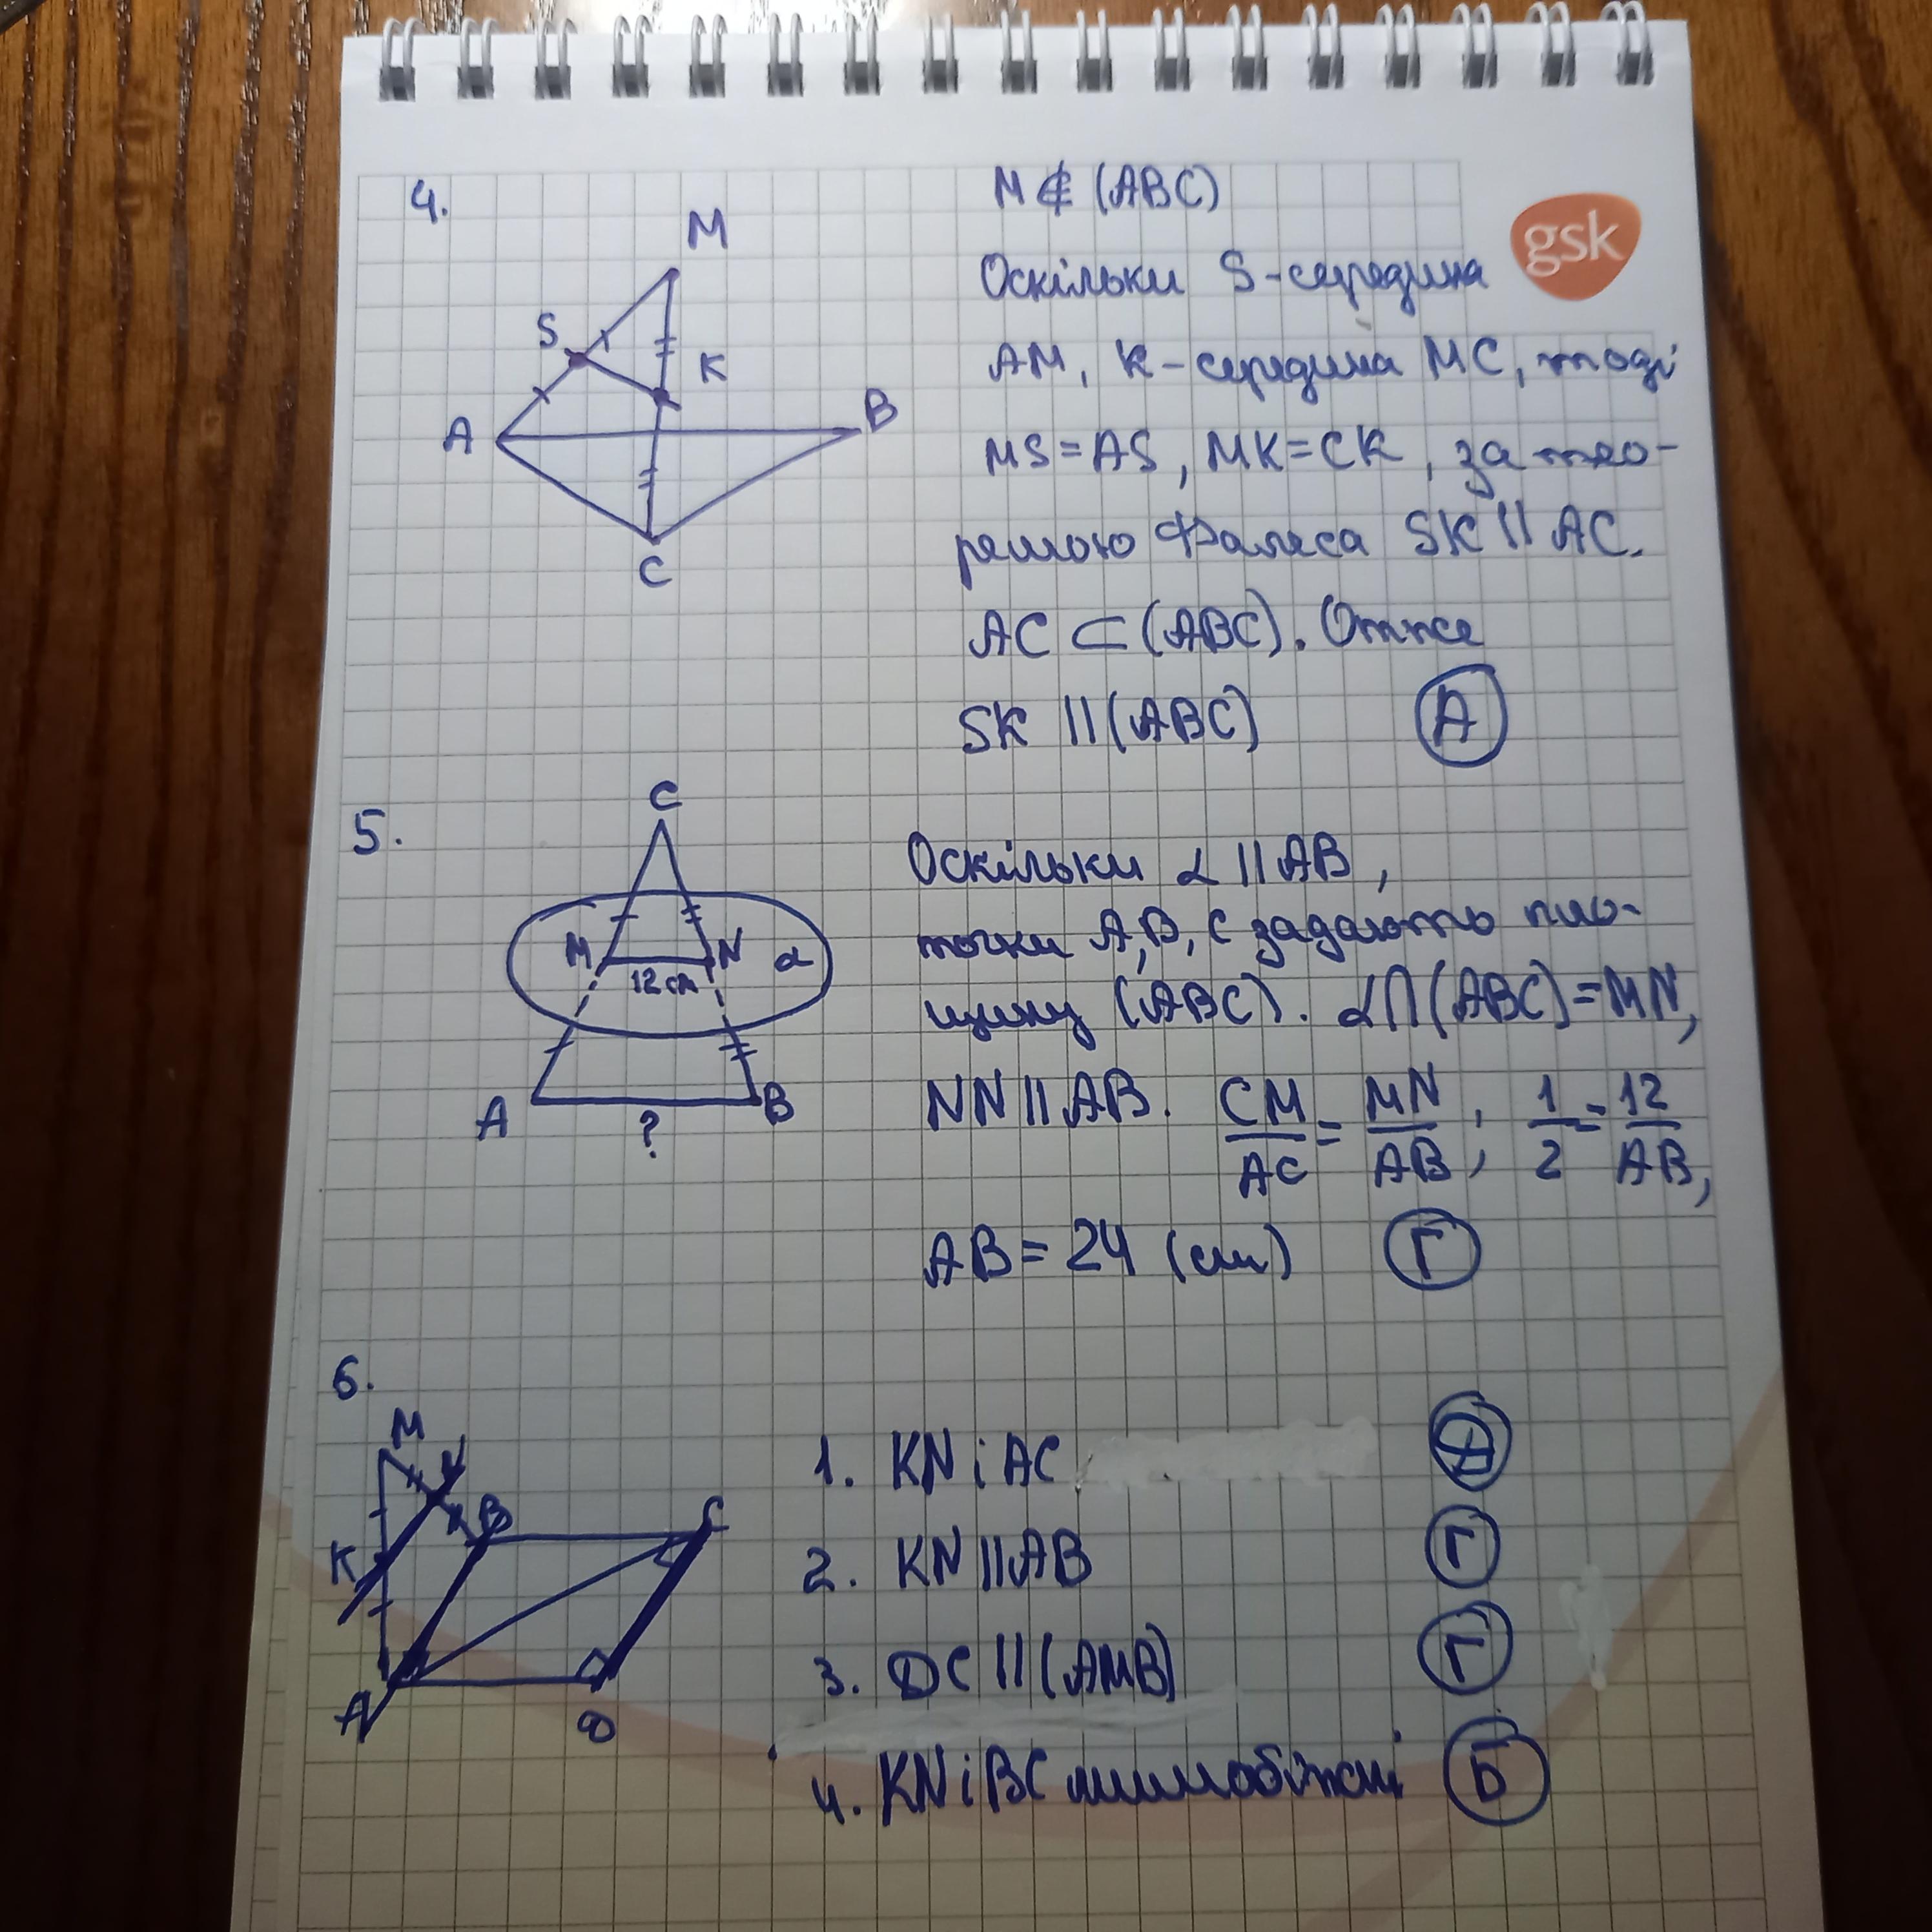 4.
M ∉ (ABC)
gsk
M
S
K
A
B
C
Оскільки S-середина
AM, K-середина MC, тоді
MS=AS, MK=CK, за тео-
ремою Фалеса SK || AC.
AC ⊂ (ABC). Отже
SK || (ABC) А
5.
C
M
N
α
12 см
A
B
?
Оскільки α || AB,
точки A, B, C задають пло-
щину (ABC). α∩(ABC)=MN,
NN || AB. CM/AC = MN/AB; 1/2 = 12/AB,
AB = 24 (см) Г
6.
M
N
B
C
K
A
D
1. KN i AC
2. KN || AB Г
3. DC || (AMB) Г
4. KN i BC мимобіжні Б